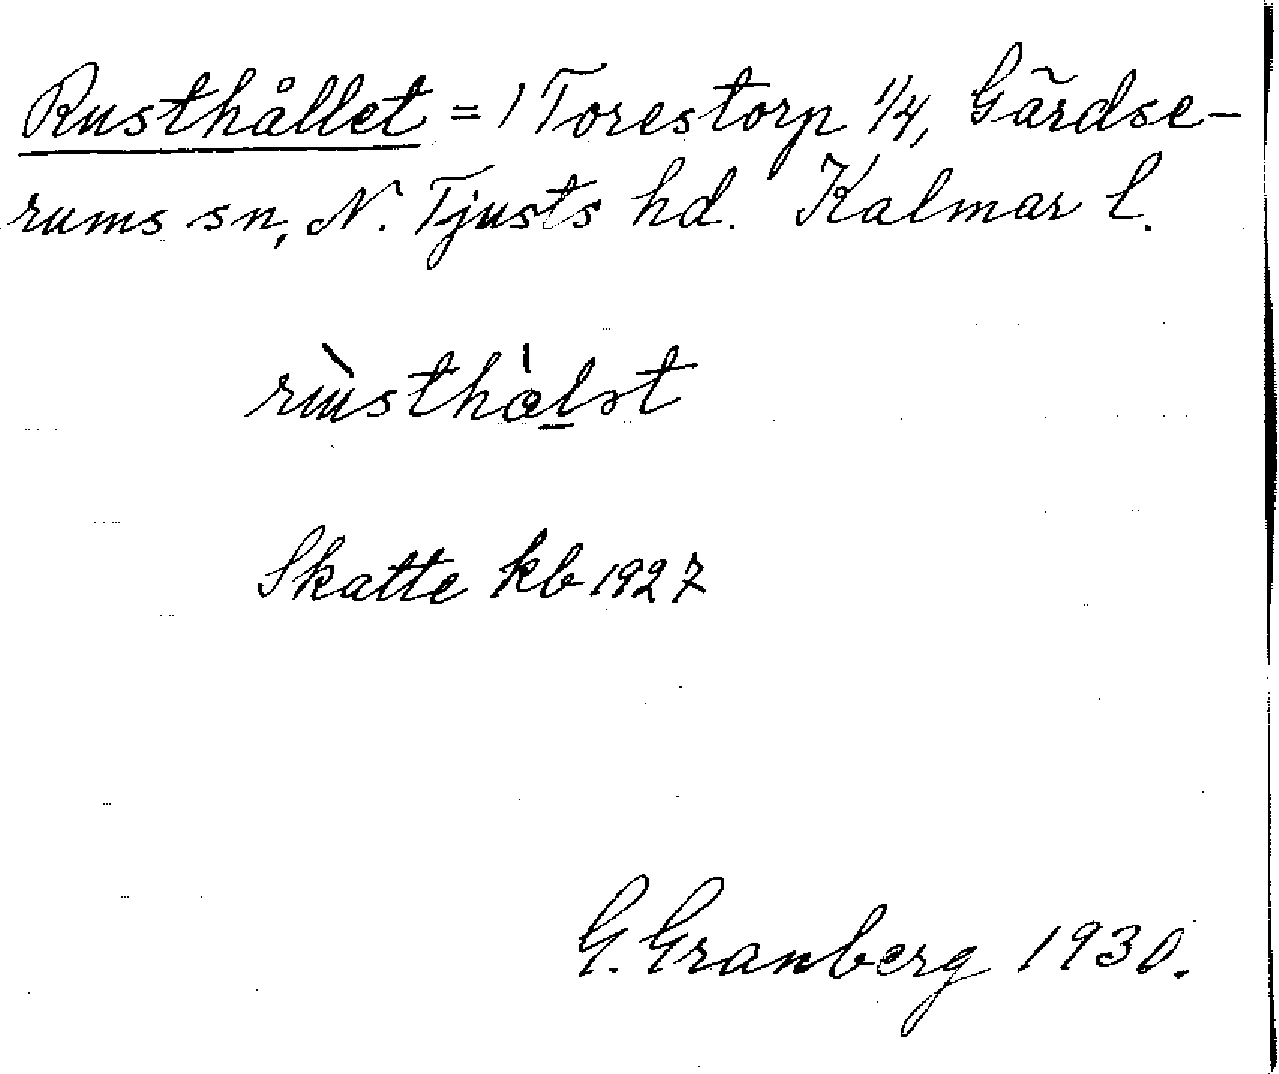 Rusthållet = 1 Torestorp 1/4, Gärdse-
rums sn, N. Tjusts hd. Kalmar l.
Skatte kb 1927
G. Granberg 1930.